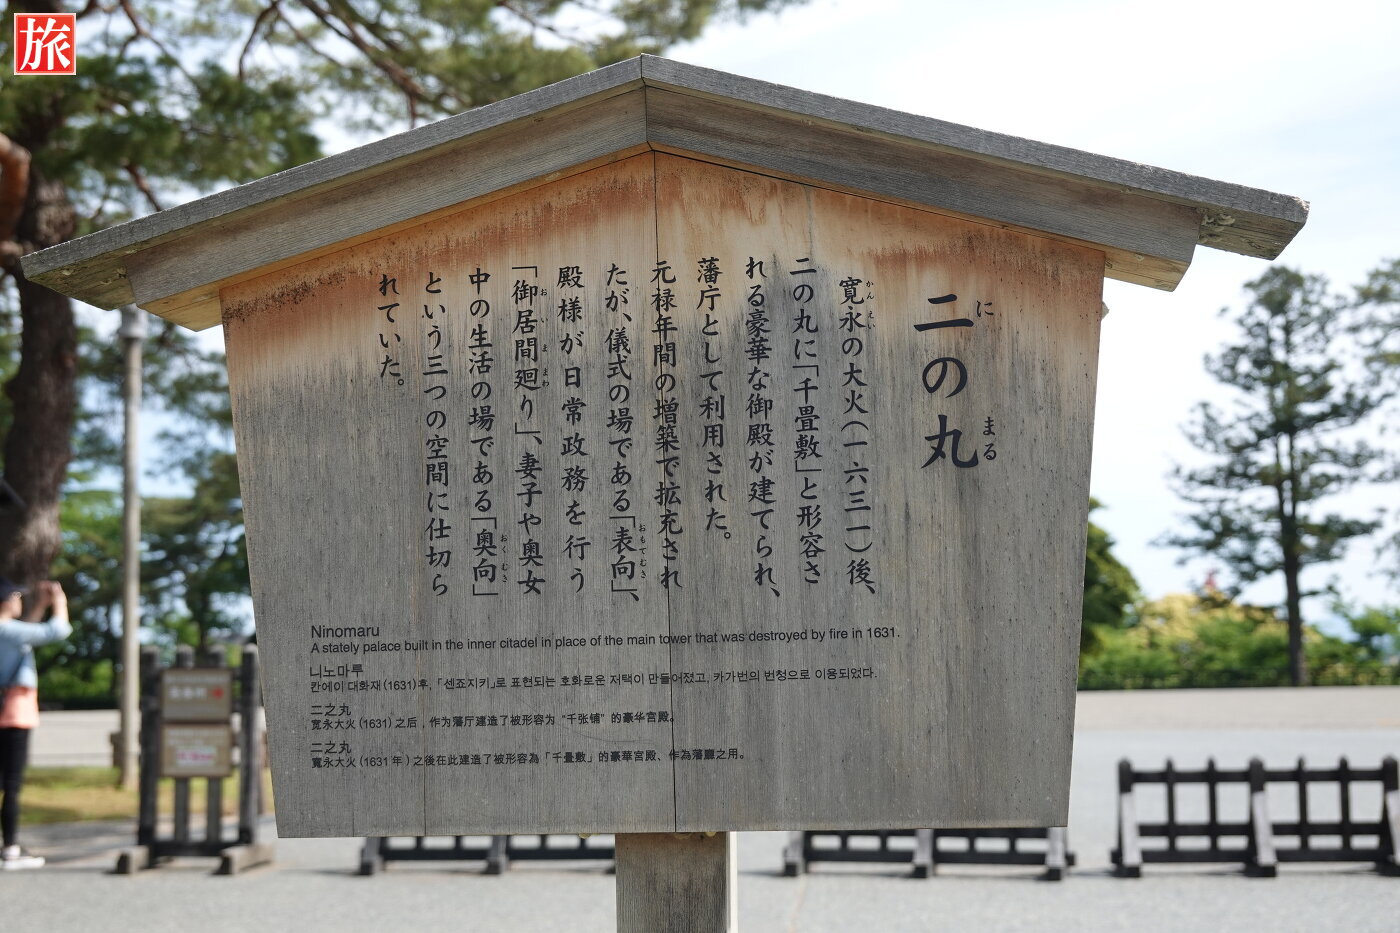 旅
二の丸
に
まる
寛永の大火(一六三一)後、
かん えい
二の丸に「千畳敷」と形容さ
れる豪華な御殿が建てられ、
藩庁として利用された。
元禄年間の増築で拡充され
たが、儀式の場である「表向」、
おもてむき
殿様が日常政務を行う
「御居間廻り」、妻子や奥女
お い ま まわ
中の生活の場である「奥向」
おくむき
という三つの空間に仕切ら
れていた。
Ninomaru
A stately palace built in the inner citadel in place of the main tower that was destroyed by fire in 1631.
니노마루
칸에이 대화재(1631)후, 「센죠지키」로 표현되는 호화로운 저택이 만들어졌고, 카가번의 번청으로 이용되었다.
二之丸
寛永大火(1631)之后，作为藩厅建造了被形容为“千张铺”的豪华宫殿。
二之丸
寬永大火(1631年)之後在此建造了被形容為「千疊敷」的豪華宮殿、作為藩廳之用。